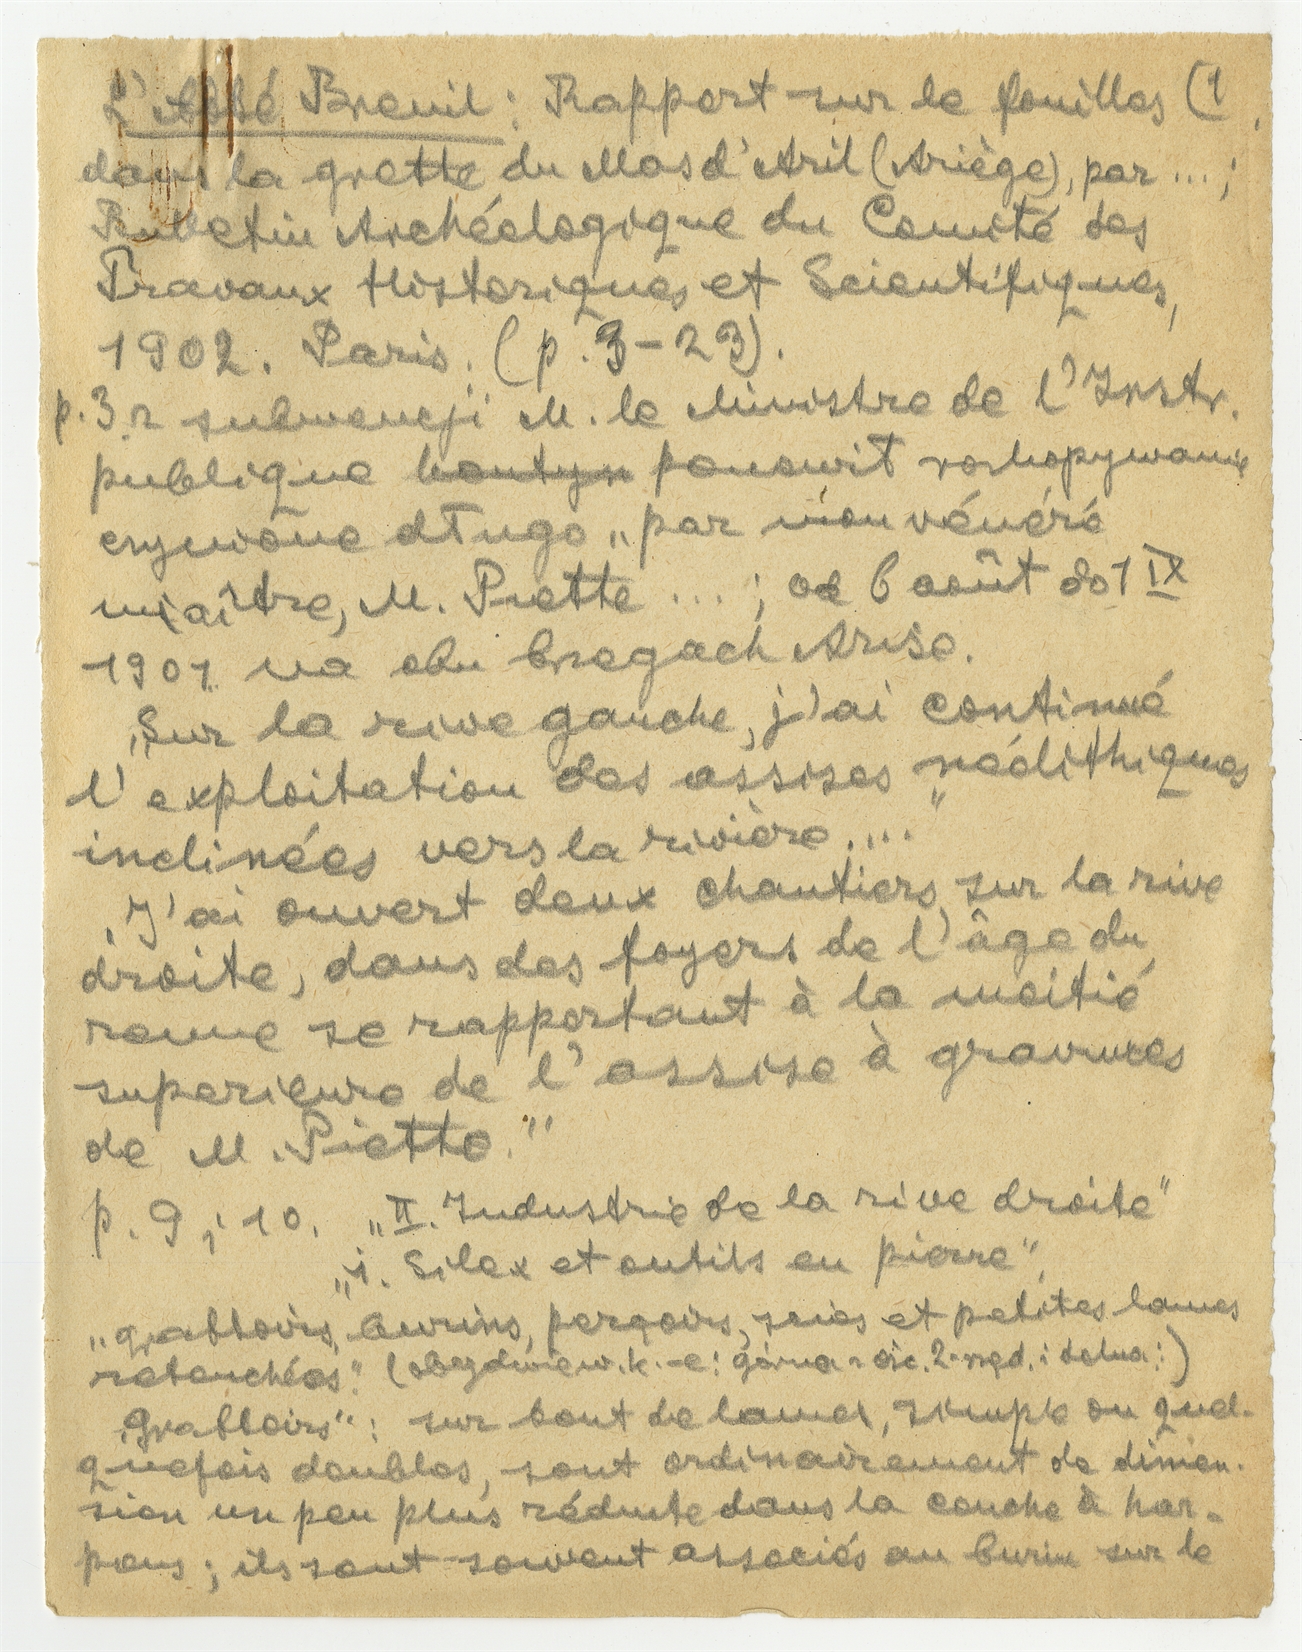 L'Abbé Breuil: Rapport sur le fouilles (1
dans la grotte du Mas d'Azil (Ariège), par ...;
Bulletin Archéologique du Comité des
Travaux Historiques et Scientifiques,
1902. Paris. (p. 3-23).
p. 3. z subwencji M. le Ministre de l'Instr.
publique ponowił rozkopywanie
czynione długo „par mon vénéré
maître, M. Piette ... ; od 6 août do 1 IX
1901 na obu bregach Arise.
„Sur la rive gauche, j'ai continué
l'exploitation des assises néolithiques
inclinées vers la rivière...."
„J'ai ouvert deux chantiers sur la rive
droite, dans des foyers de l'âge du
renne se rapportant à la moitié
superieure de l'assise à gravures
de M. Piette."
p. 9 i 10. „II. Industrie de la rive droite"
„i. Silex et outils en pierre",
„grattoirs, burins, perçoirs, scies et petites lames
retouchées." (obydwie w. k.-c: górna z ośc. 2-rzęd. i dolna:)
„Grattoirs": sur bout de lames, simple ou quel-
quefois doubles, sont ordinairement de dimen-
sion un peu plus réduite dans la couche à har-
pons; ils sont souvent associés au burin sur le